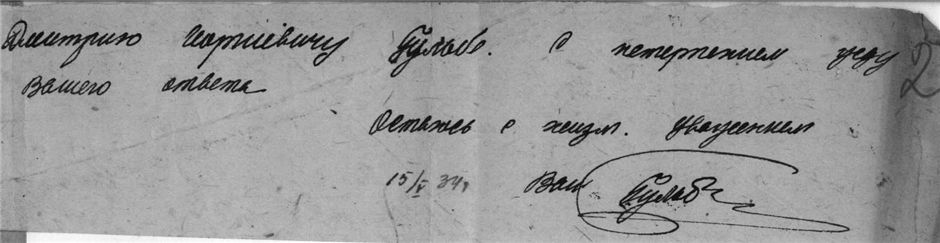 Дмитрию Георгиевичу Гульбе. С нетерпением жду
Вашего ответа
Остаюсь с неизм. уважением
15/V 34г Ваш Гульбе
2